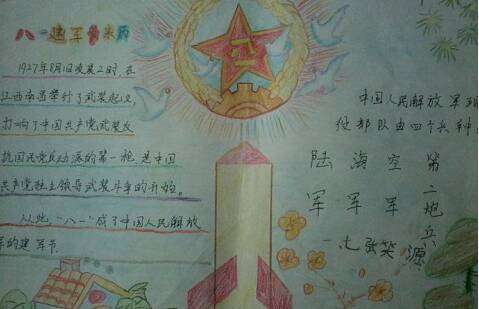 八一建军节来历
1927年8月1日凌晨2时,在
江西南昌举行了武装起义,
打响了中国共产党武装反
抗国民党反动派的第一枪,是中国
共产党独立领导武装斗争的开始。
从此“八一”成了中国人民解放
军的建军节
八一
中国人民解放军现
役部队由四个兵种
陆军
海军
空军
第二炮兵